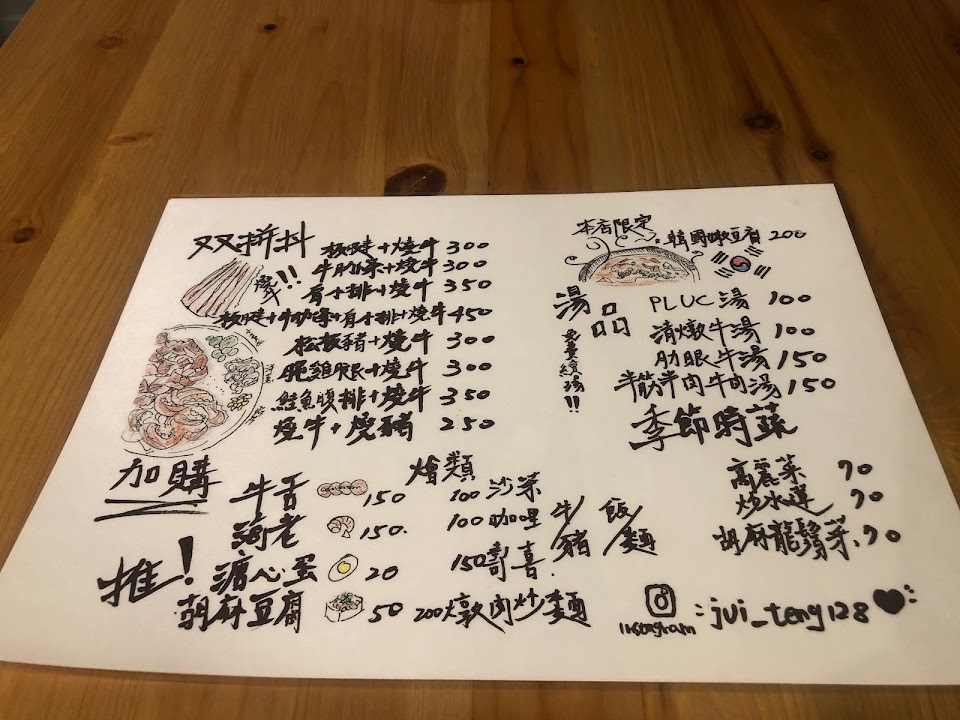 双拼丼
板腱+燒牛 300
牛肋條+燒牛 300
燒牛!!
有小排+燒牛 350
板腱+牛肋條+有小排+燒牛 450
松板豬+燒牛 300
雞腿+燒牛 300
鮭魚腹排+燒牛 350
燒牛+燒豬 250
本店限定
韓國嫩豆腐 200
湯品
免費續湯!!
PLUC湯 100
清燉牛湯 100
肋眼牛湯 150
半筋半肉牛肉湯 150
季節時蔬
高麗菜 70
炒水蓮 70
胡麻龍鬚菜 70
加購
牛舌 150
海老 150
推!
溏心蛋 20
胡麻豆腐 50
燴類
100 沙茶
100 咖哩
150 壽喜
牛/豬
飯/麵
200 燉肉炒麵
Instagram
:jui_teng128